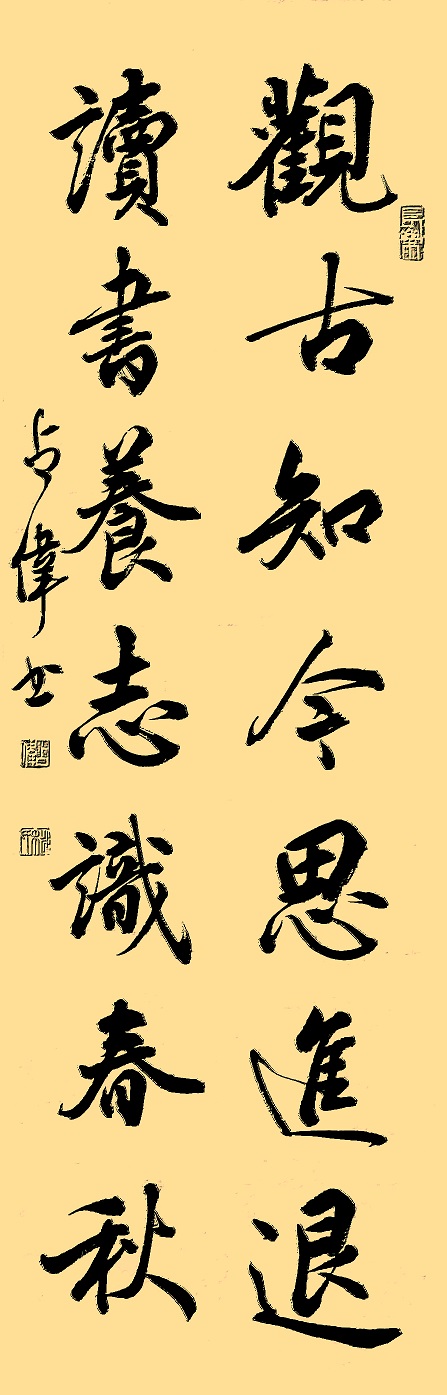 觀古知今思進退
讀書養志識春秋
占偉书